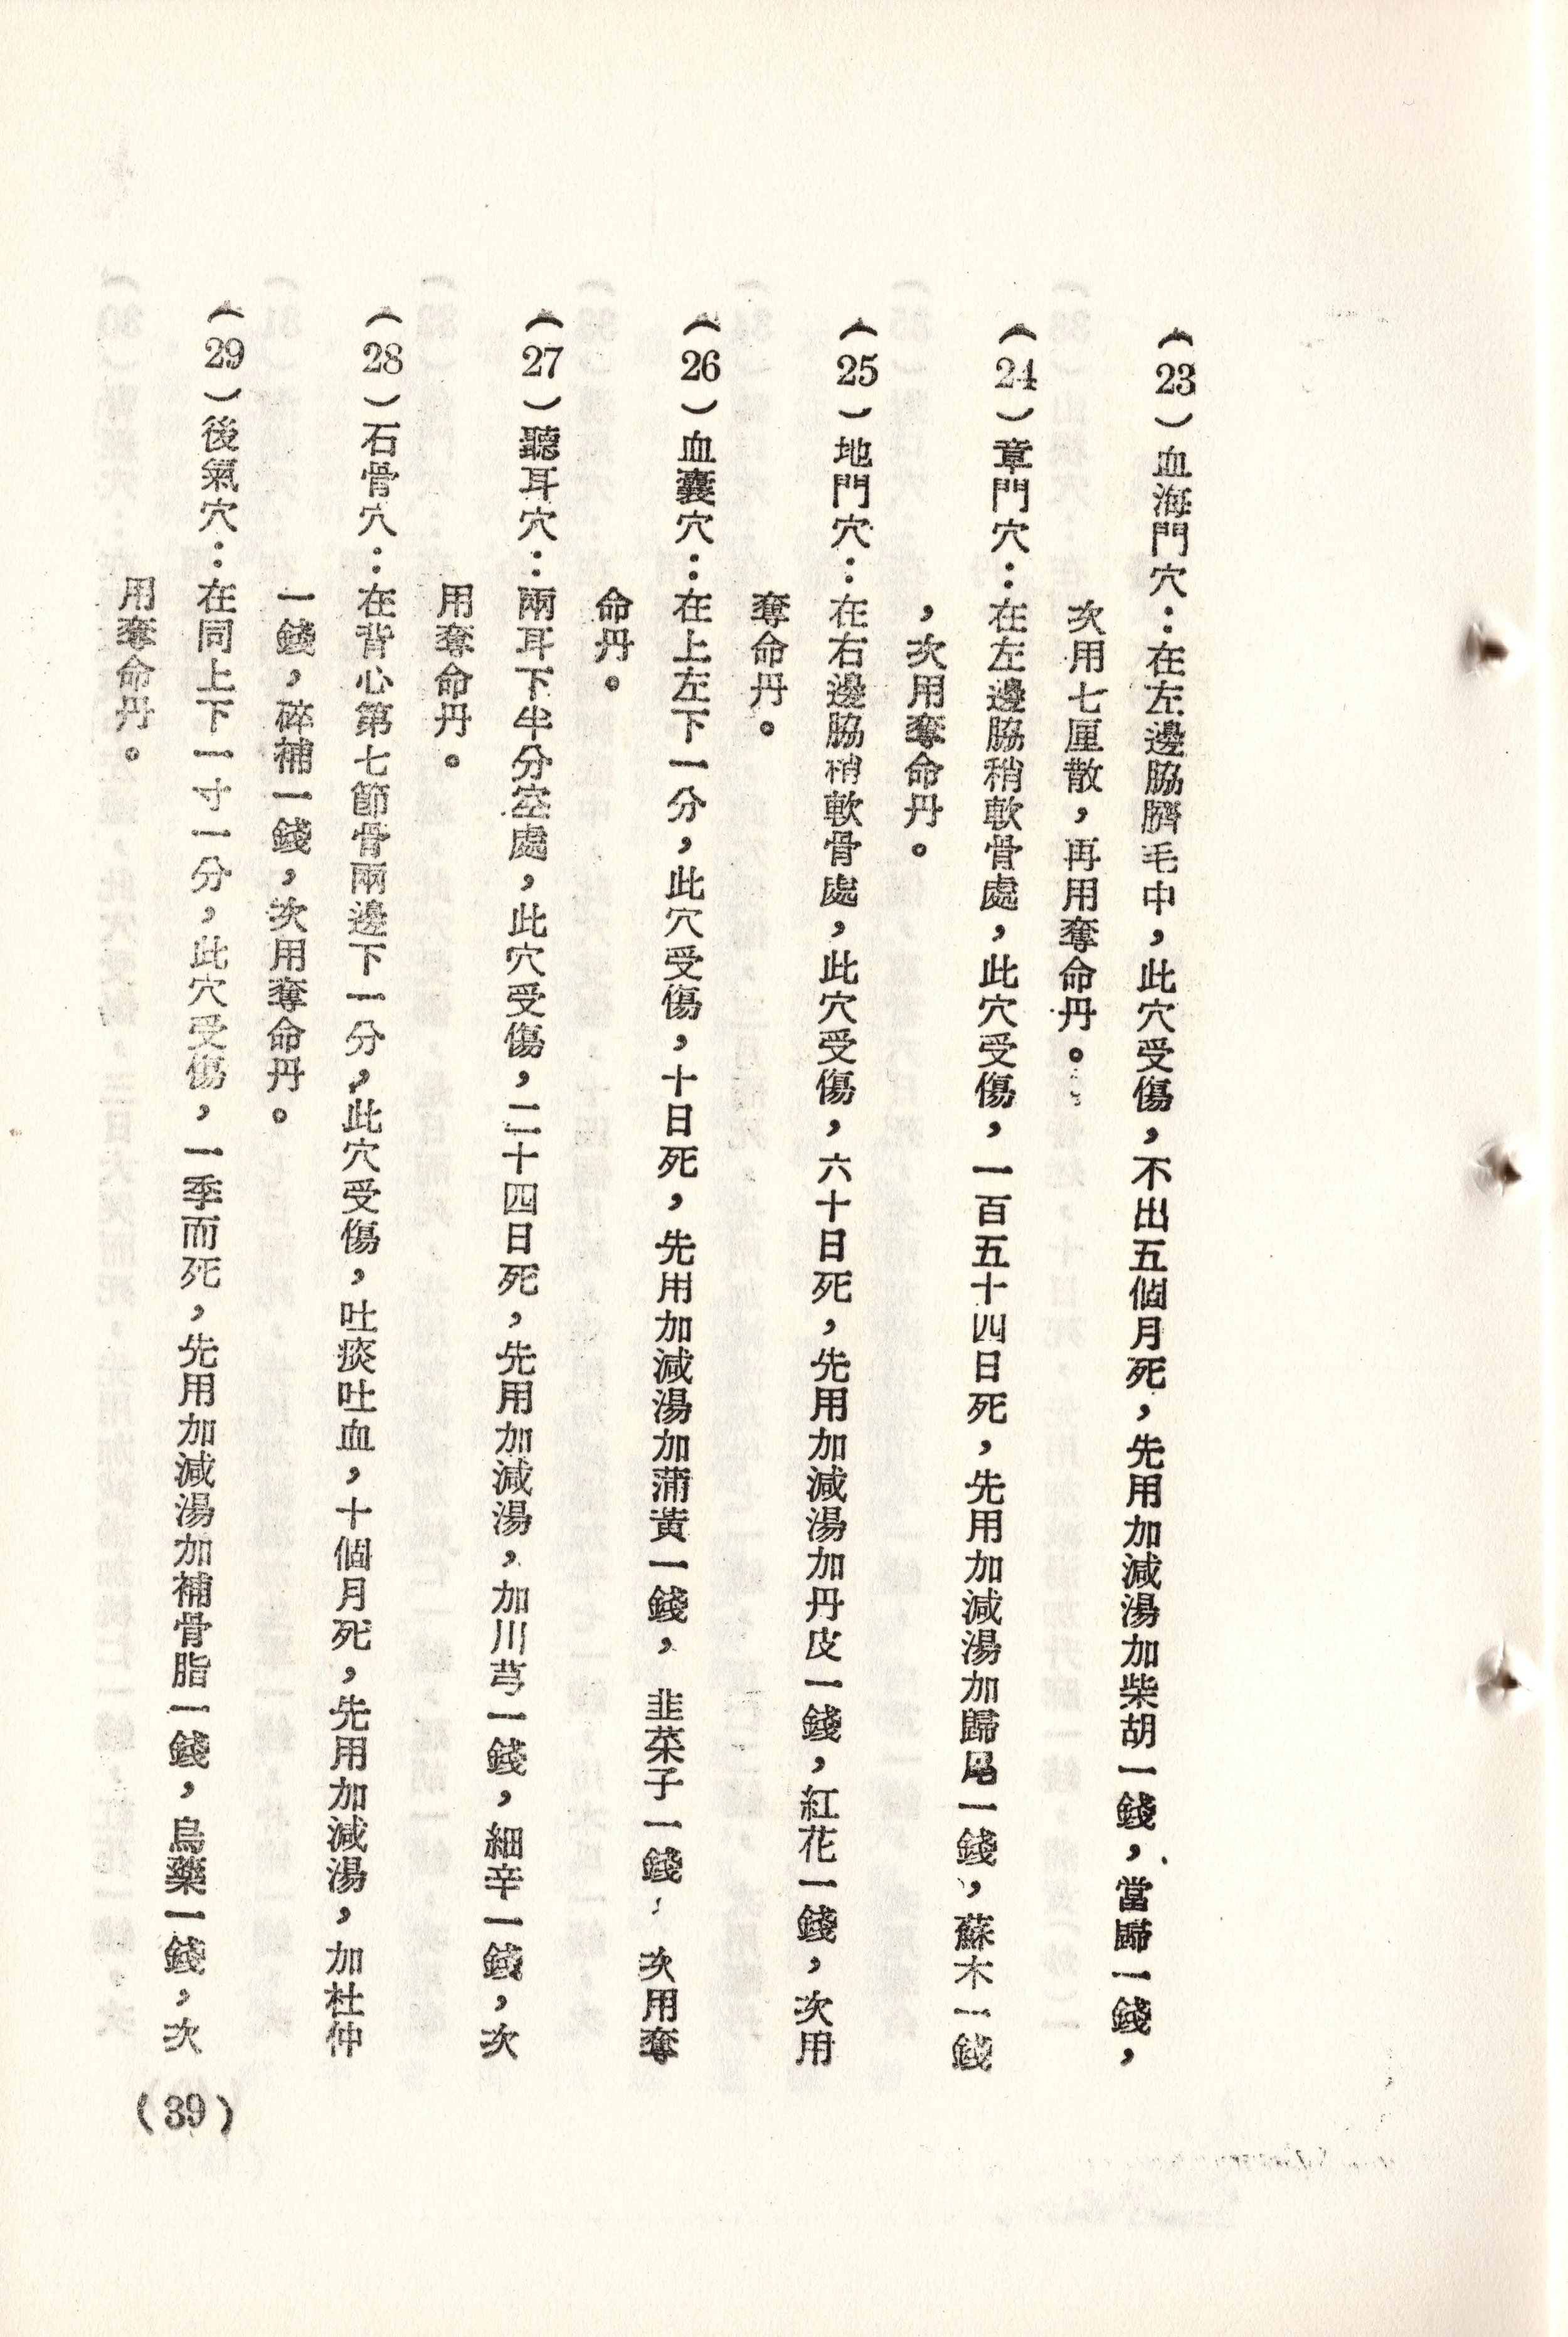 （23）血海門穴：在左邊脇臍毛中，此穴受傷，不出五個月死，先用加減湯加柴胡一錢，當歸一錢，
次用七厘散，再用奪命丹。
（24）章門穴：在左邊脇稍軟骨處，此穴受傷，一百五十四日死，先用加減湯加歸尾一錢，蘇木一錢
，次用奪命丹。
（25）地門穴：在右邊脇稍軟骨處，此穴受傷，六十日死，先用加減湯加丹皮一錢，紅花一錢，次用
奪命丹。
（26）血囊穴：在上左下一分，此穴受傷，十日死，先用加減湯加蒲黃一錢，韭菜子一錢，次用奪
命丹。
（27）聽耳穴：兩耳下半分空處，此穴受傷，二十四日死，先用加減湯，加川芎一錢，細辛一錢，次
用奪命丹。
（28）石骨穴：在背心第七節骨兩邊下一分，此穴受傷，吐痰吐血，十個月死，先用加減湯，加杜仲
一錢，碎補一錢，次用奪命丹。
（29）後氣穴：在同上下一寸一分，此穴受傷，一季而死，先用加減湯加補骨脂一錢，烏藥一錢，次
用奪命丹。
（39）